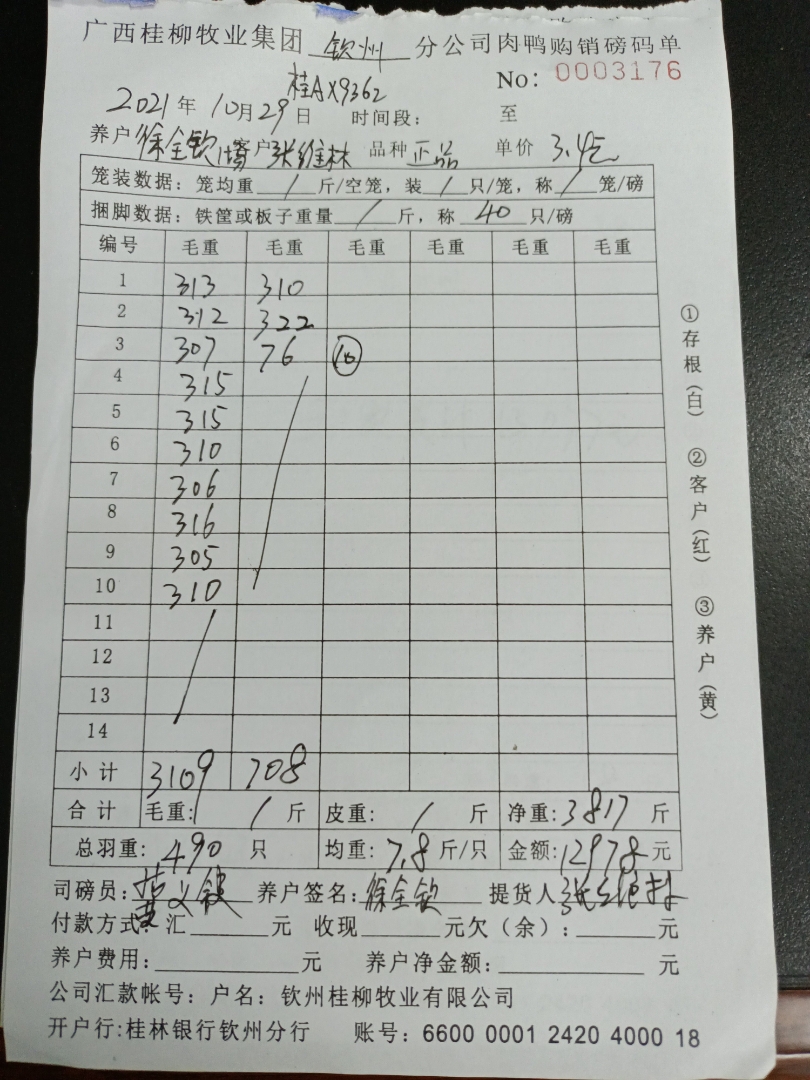 广西桂柳牧业集团 钦州 分公司肉鸭购销磅码单
No: 0003176
桂AX9362
2021年10月29日 时间段: 至
养户 徐全钦 客户 张维林 品种 正品 单价 3.4元
笼装数据: 笼均重 / 斤/空笼, 装 / 只/笼, 称 / 笼/磅
捆脚数据: 铁筐或板子重量 / 斤, 称 40 只/磅
编号 毛重 毛重 毛重 毛重 毛重 毛重
1 313 310
2 312 322
3 307 76 ⑩
4 315
5 315
6 310
7 306
8 316
9 305
10 310
11
12
13
14
小计 3109 708
合计 毛重: / 斤 皮重: / 斤 净重: 3817 斤
总羽重: 490 只 均重: 7.8 斤/只 金额: 12978 元
司磅员: 养户签名: 徐全钦 提货人 张维林
付款方式: 汇 元 收现 元欠(余): 元
养户费用: 元 养户净金额: 元
公司汇款帐号: 户名: 钦州桂柳牧业有限公司
开户行:桂林银行钦州分行 账号: 6600 0001 2420 4000 18
①存根(白) ②客户(红) ③养户(黄)